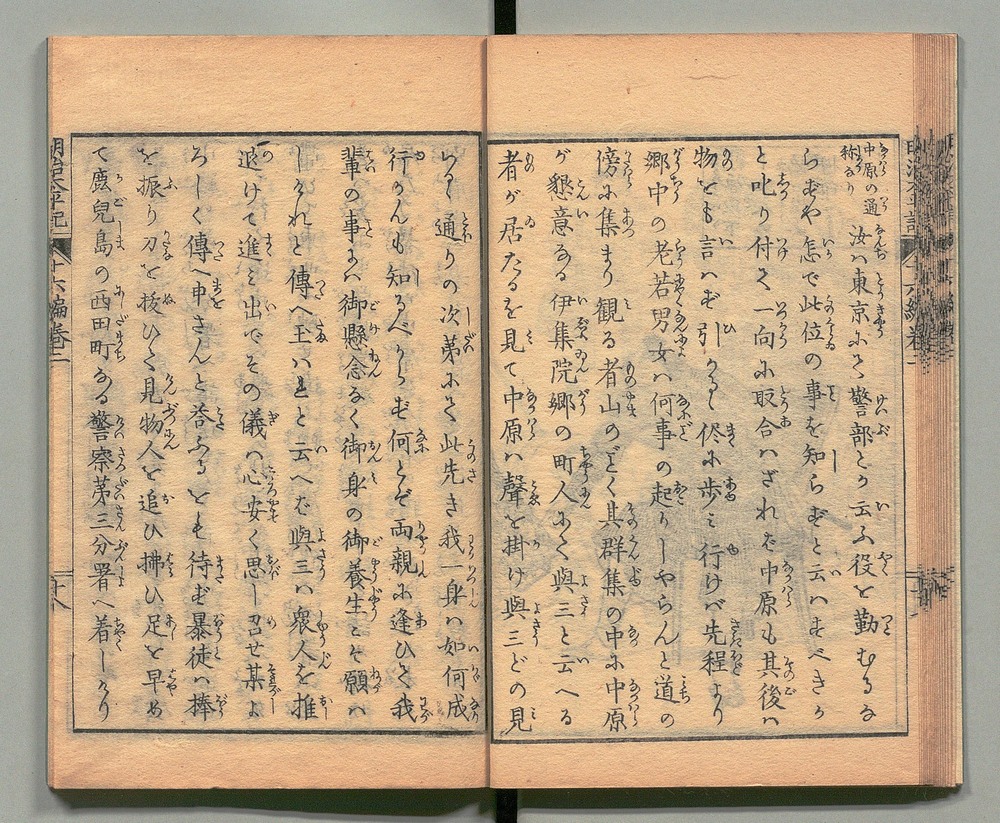 中原の通
称なり
汝ハ東京にて警部とか云ふ役を勤むるな
らずや怎で此位の事を知らずと云ハすべきか
と叱り付て一向に取合ハざれバ中原も其後ハ
物をも言ハず引るゝ侭に歩ミ行けバ先程より
郷中の老若男女ハ何事の起りしやらんと道の
傍に集まり観る者山のごとく其群集の中に中原
が懇意なる伊集院郷の町人にて與三と云へる
者が居たるを見て中原ハ聲を掛け與三どの見
らるゝ通りの次第にて此先き我一身ハ如何成
行かんも知るべからず何とぞ両親に逢ひて我
輩の事にハ御懸念なく御身の御養生こそ願ハ
しけれと傳へ玉ハれと云へバ與三ハ衆人を推
退けて進ミ出でその儀ハ心安く思し召せ某よ
ろしく傳へ申さんと答ふるをも待ず暴徒ハ捧
を振り刀を抜ひて見物人を追ひ拂ひ足を早め
て鹿児島の西田町なる警察第三分署へ着しけり
明治太平記
十六編巻二
十八